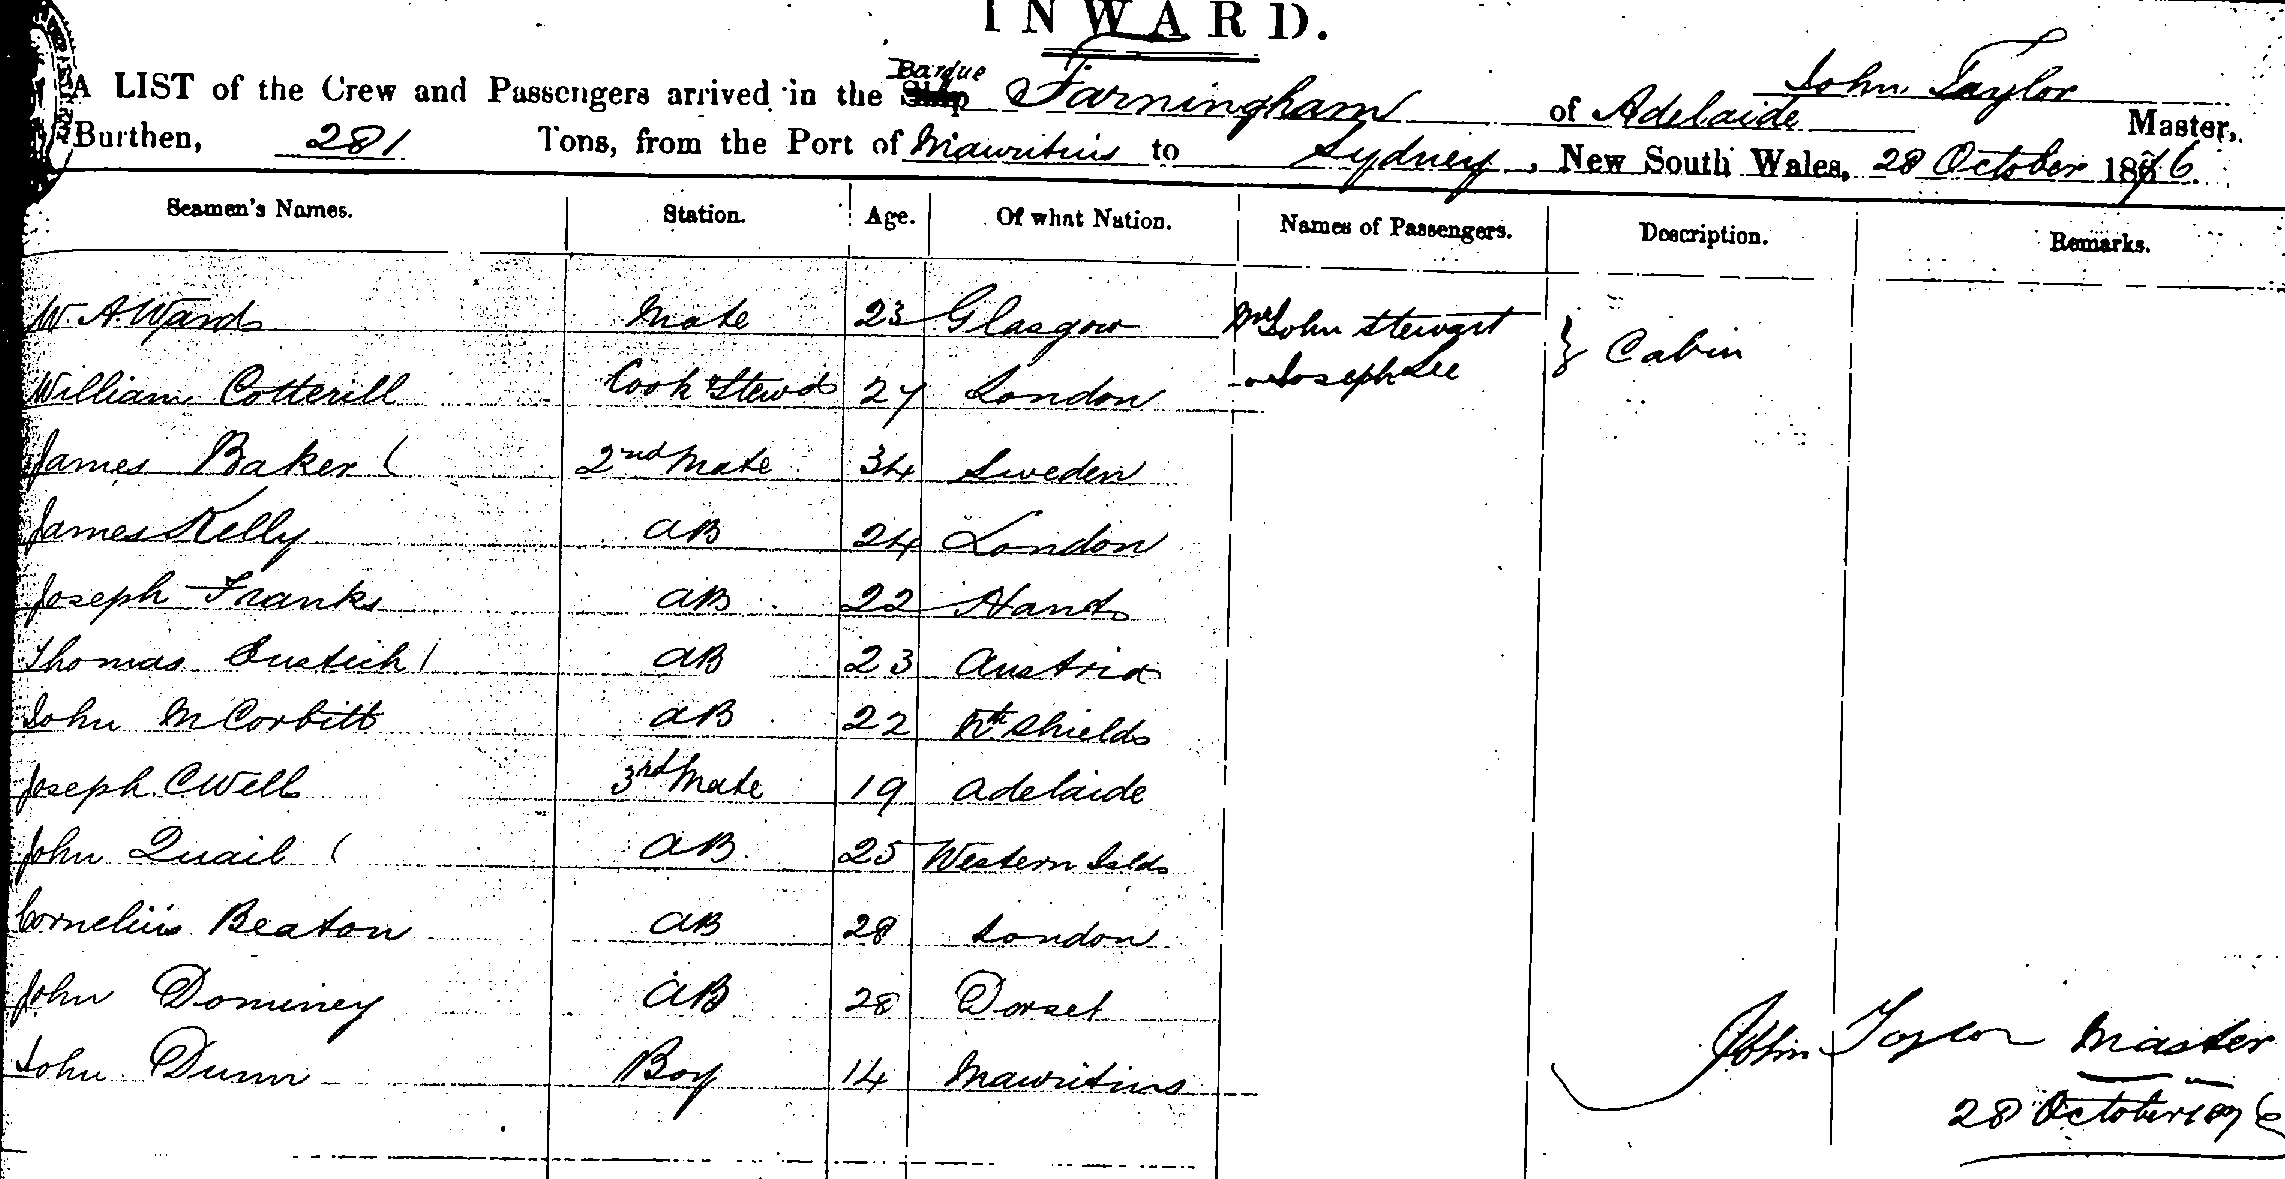 INWARD.
A LIST of the Crew and Passengers arrived in the Barque Ship Farningham of Adelaide John Taylor Master,
Burthen, 281 Tons, from the Port of Mauritius to Sydney, New South Wales, 28 October 1876
Seamen's Names. Station. Age. Of what Nation. Names of Passengers. Description. Remarks.
W. A Ward Mate 23 Glasgow Mr John Stewart } Cabin
William Cotterill Cook & Stewd 27 London Joseph Lee
James Baker 2nd Mate 34 Sweden
James Kelly AB 24 London
Joseph Franks AB 22 Hants
Thomas AB 23 Austria
John McCorbitt AB 22 Nth Shields
Joseph C Well 3rd Mate 19 Adelaide
John Quail AB 25 Western Islds
Cornelius Beaton AB 28 London
John Dominey AB 28 Dorset
John Dunn Boy 14 Mauritius
John Taylor Master
28 October 1876